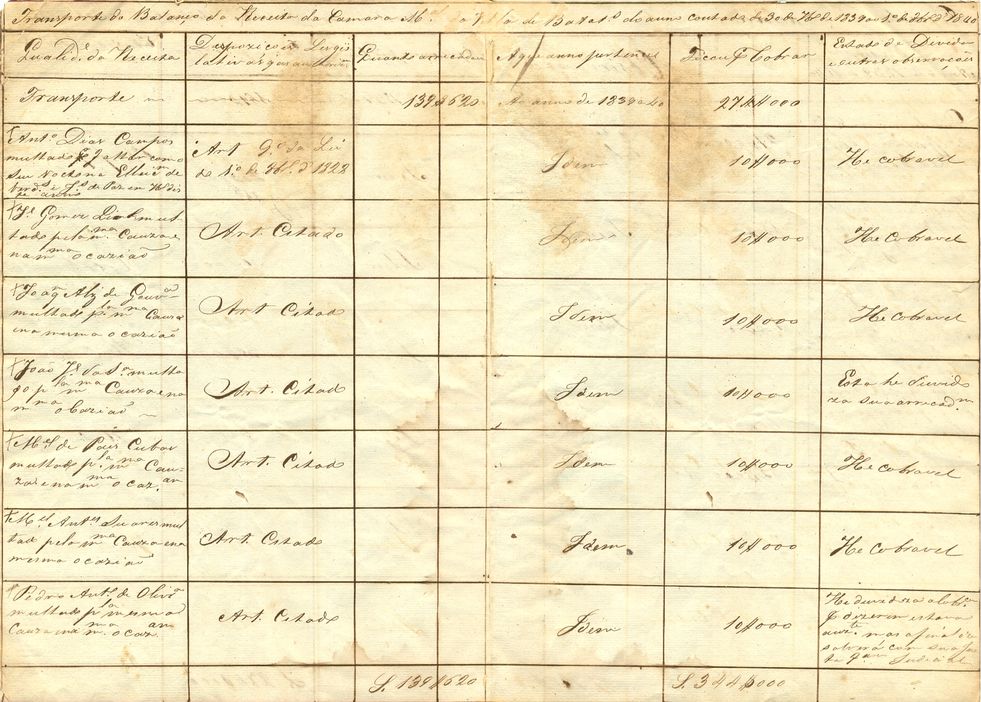 Transporte do Balanço da Receita da Camara M.al da Villa de Batat.s do anno contado de 30 de 7br.º de 1839 ao 1.º de 8br.º d' 1840
Qualid.e da Receita
Dispozicoens Legis
lativas que
Quando arrecadou
A que anno pertence
Ficou p. Cobrar
Estado da Divida
e outras observações
Transporte
139$620
Ao anno de 1839 a 40
274$000
Ant.º Dias Campos
multado p.r faltar com o
seu voto na Elleiçaõ de
Art 9º da Lei
do 1.º de 8br.º d' 1828
Idem
10$000
He cobravel
J.e Gomes mul
tado pela m.ma Cauza e
na m.ma ocaziaõ
Art. Citado
Idem
10$000
He cobravel
Joaõ Alz de Gouv.a
multado p.la m.ma Cauza
e na mesma ocaziaõ
Art. Citado
Idem
10$000
He cobravel
João J.e da S.a multa
do p.la m.ma Cauza e na
m.ma ocaziaõ
Art. Citado
Idem
10$000
Esta he duvido
za sua arrecad.m
M.el de Pais Cubas
multado p.la m.ma Cau
za e na m.ma ocaz.am
Art. Citado
Idem
10$000
He cobravel
M.el Ant.es Suares mul
tado pela m.ma Cauza e na
mesma ocaziaõ
Art. Citado
Idem
10$000
He Cobravel
Pedro Ant.º de Oliv.ra
multado p.la mesma
Cauza e na m.ma ocaz.am
Art. Citado
Idem
10$000
He duvidoza a cobr.ça
p. dizerem estava
auz.te mas afinal se
solverá com sua jus
ta
S. 139$620
S. 344$000